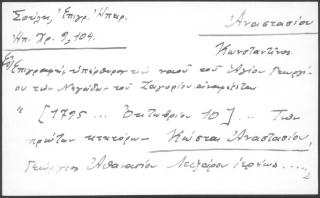 Σούλη, Ἐπιγρ. Ἠπειρ.
Ἠπ. Χρ. 9, 104.
Ἀναστασίου
Κωνσταντῖνος
Ἐπιγραφή, ὑπέρθυρον τοῦ ναοῦ τοῦ Ἁγίου Γεωργίου
τῶν Νεγάδων τοῦ Ζαγορίου
" [1795 ... Ὀκτωβρίου 10] ... Τῶν
πρώτων κτητόρων Κώστα Ἀναστασίου,
Γεώργιος Ἀθανασίου ἱερέως .....,